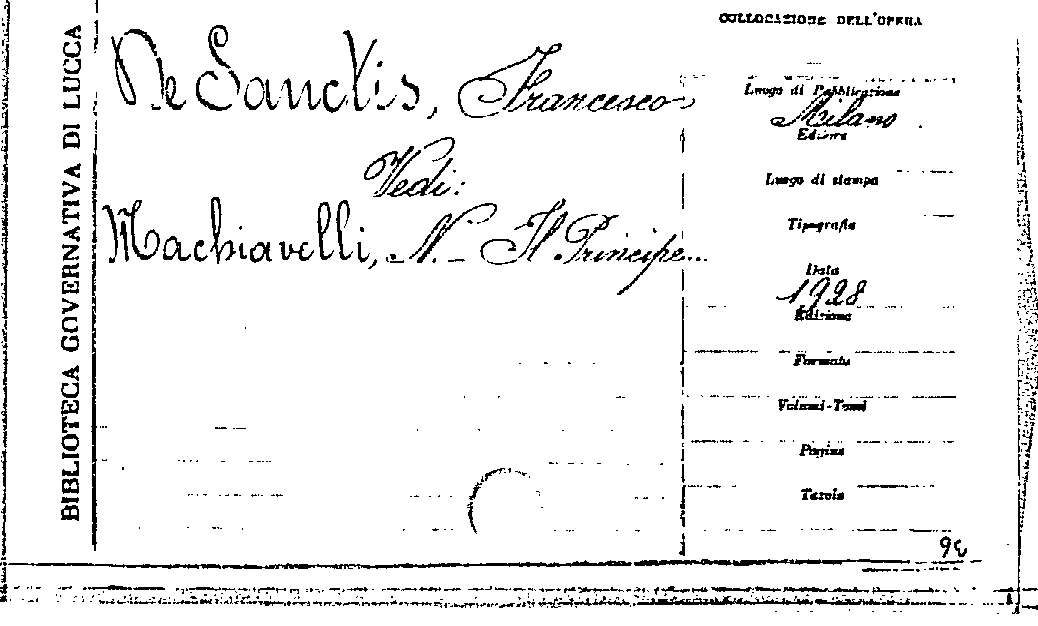 BIBLIOTECA GOVERNATIVA DI LUCCA
De Sanctis, Francesco
Vedi:
Machiavelli, N. - Il Principe...
COLLOCAZIONE DELL'OPERA
Luogo di Pubblicazione
Milano
Editore
Luogo di stampa
Tipografia
Data
1928
Edizione
Formato
Volumi-Tomi
Pagine
Tavole